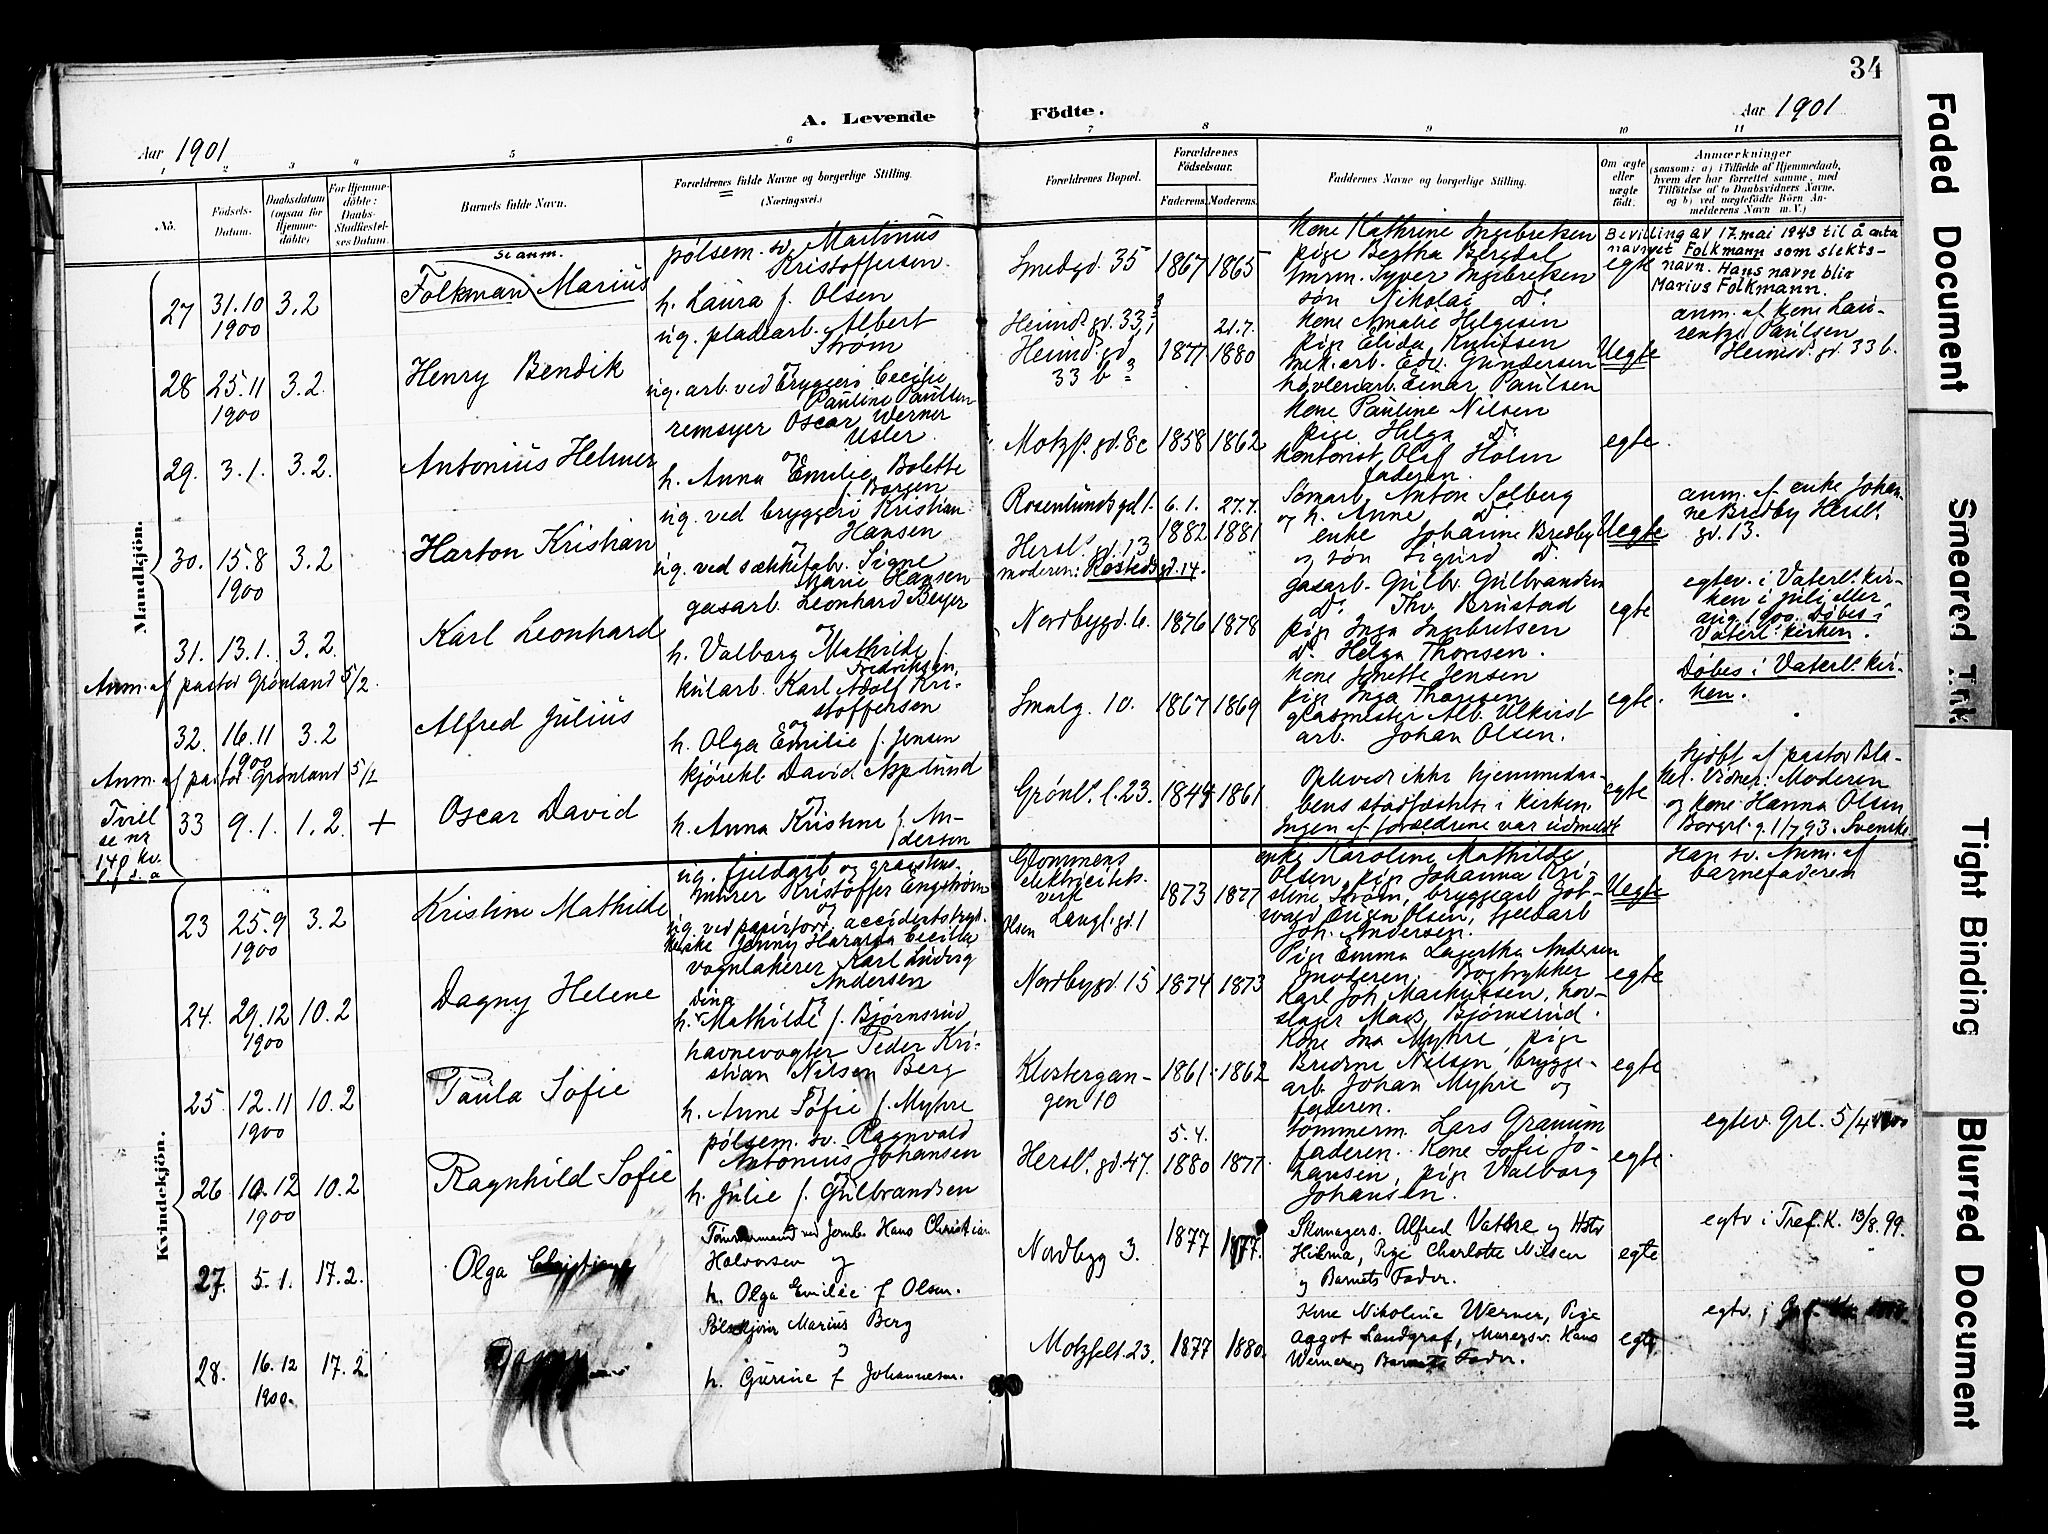 34
A. Levende Födte.
Aar 1901
Aar 1901
1 2 3 4 5 6 7 8 9 10 11
No.
Födsels-Datum.
Daabsdatum (ogsaa for Hjemme-döbte)
For Hjemme-döbte: Daabs-Stadfæstel-ses Datum.
Barnets fulde Navn.
Forældrenes fulde Navne og borgerlige Stilling.
(Næringsvei.)
Forældrenes Bopæl.
Forældrenes Födselsaar.
Faderens. Moderens.
Faddernes Navne og borgerlige Stilling.
Om ægte eller uægte født.
Anmærkninger
(saasom: a) i Tilfælde af Hjemmedaab,
hvem der har forrettet samme, med
Tilföielse af to Daabsvidners Navne,
og b) ved uægtefödte Börn An-
melderens Navn m. V.)
Mandkjön.
se anm.
27 31.10 1900 3.2
Folkman Marius
pølsem. sv. Martinus
Kristoffersen
h. Laura f. Olsen
Smedgd. 35 1867 1865
Kone Kathrine Ingebretsen
pige Bertha Bergdal
Syver Ingebretsen
søn Nikolai Do
egte
Bevilling av 17. mai 1943 til å anta
navnet Folkmann som slekts-
navn. Hans navn blir
Marius Folkmann.
28 25.11 1900 3.2
Henry Bendik
ug. pladearb. Albert
Strøm
og
ug. arb. ved bryggeri Cecilie
Pauline Paulsen
Heimd. gd. 33,
Heimd. gd
33 b
21.7.
1877 1880
Kone Amalie Helgesen
Pige Elida Knutsen
mek. arb. Edv. Gundersen
høvleriarb. Einar Paulsen
Uegte
anm. af kone Lau-
rentze Paulsen
Heimsd. gd. 33 b.
29. 3.1. 3.2.
Antonius Helmer
remsyer Oscar Werner
Usler
og
h. Anna Emilie Bolette
f. Borgen
Motzf. gd. 8c 1858 1862
Kone Pauline Nilsen
pige Helga Do
Kontorist Olaf Holm
faderen.
egte
30. 15.8 1900 3.2
Harton Kristian
ug. ved bryggeri Kristian
Hansen
og
ug. ved sækkefabr. Signe
Marie Hansen
Rosenlunds gd 1.
Hersl. gd. 13
moderen: Rosteds gd. 14.
6.1. 27.7.
1882 1881
Sømarb. Anton Solberg
og h. Anne Do
enke Johanne Bredby
og søn Sigurd Do
Uegte
anm. af enke Johan-
ne Bredby Hersl.
gd. 13.
31. 13.1. 3.2.
Karl Leonhard
gasarb. Leonhard Beyer
og
h. Valborg Mathilde f.
Fredriksen
Nordbygd. 6. 1876 1878
gasarb. Gulbr. Gulbrandsen
Do Thv. Brustad
pige Inga Ingebretsen
Do Helga Thoresen.
egte
egtev. i Vaterl. kir-
ken i juli eller
aug 1900. Døbes i
Vaterl. kirken.
Anm. af pastor Grønland 5/2.
32. 16.11 1900 3.2
Alfred Julius
kularb. Karl Adolf Kri-
stoffersen
og
h. Olga Emilie f. Jensen
Smalg. 10. 1867 1869
Kone Jonette Jensen
pige Inga Thoresen
glasmester Alb. Ulkvist
arb. Johan Olsen.
egte.
Døbes i Vaterl. kir-
ken.
Anm. af pastor Grønland 5/2
33 9.1. 1.2. +
Oscar David
kjørekl. David Asplund
og
h. Anna Kristine f. An-
derson
Grønl. l. 23. 1849 1861
Oplevede ikke hjemmedaa-
bens stadfæstelse i kirken.
Ingen af forældrene var udmeldt
egte
hjdbt af pastor Bla-
kel. Vidner: Moderen
og Kone Hanna Olsen
Borgvl. g. 1/7 93. Svenske
Tvill
se nr
140 kv.
Kvindekjön.
23 25.9 1900 3.2
Kristine Mathilde
ug. fjeldarb og graastens-
murer Kristoffer Engstrøm
og
ug. ved papirforr. accidentstryk.
Jenny Cecilie
Olsen
Glommens
elektricitets-
verk
Langl. gd. 1
1873 1877
enke Karoline Mathilde
Olsen, pige Johanna Kri-
stine Strøm, bryggearb Got-
vald Eugen Olsen, fjeldarb
Joh. Andersen.
Uegte
Han sv. Anm. af
barnefaderen
24. 29.12 1900 10.2
Dagny Helene
vognlakerer Karl Ludvig
Andersen
og
Dina
h. Mathilde f. Bjørnsrud
Nordbygd. 15 1874 1873
Pige Emma Lagertha Andersen
moderen. Bogtrykker
Karl Joh. Markussen, hov-
slager Mads Bjørnsrud.
egte
25 12.11 1900 10.2
Paula Sofie
havnevogter Peder Kri-
stian Nilsen Berg
og
h. Anne Sofie f. Myhre
Klostergan-
gen 10
1861. 1862
Kone Ina Myhre, pige
Bredine Nilsen, brygge-
arb. Johan Myhre og
faderen.
egte
26 10.12 1900 10.2
Ragnhild Sofie
pølsem. sv. Ragnvald
Antonius Johansen
og
h. Julie f. Gulbrandsen
Hersl. gd. 47.
5.4.
1880 1877.
tømmerm. Lars Granum
faderen. Kone Sofie Jo-
hansen, pige Valborg
Johansen.
egte.
egtev. Grl. 5/4 1900
27. 5.1. 17.2.
Olga Christiane
Tømmermand ved Jernb. Hans Christian
Halvorsen og
h. Olga Emilie f Olsen.
Nordbyg 3. 1877 1877.
Skomagers. Alfred Vathe og Hstr
Hilma, Pige Charlotte Nilsen
og Barnets Fader.
egte
egtv i Tref. K. 13/8. 99.
28. 16.12 1900. 17.2.
Dagny
Marius Berg
og
h. Gurine f Johannesen.
Motzfelt. 23. 1877 1880.
Kone Nikoline Werner, Pige
Aagot Landgraf, Murersv. Hans
Werner og Barnets Fader.
egte
egtv. i
Faded Document
Smeared Ink
Tight Binding
Blurred Document